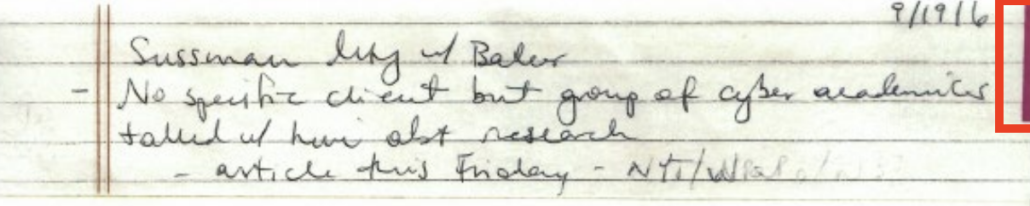 9/19/16
Sussman Mtg w/ Baker
- No specific client but group of cyber academics
talked w/ him abt research
- article this Friday - NYT/WSJ